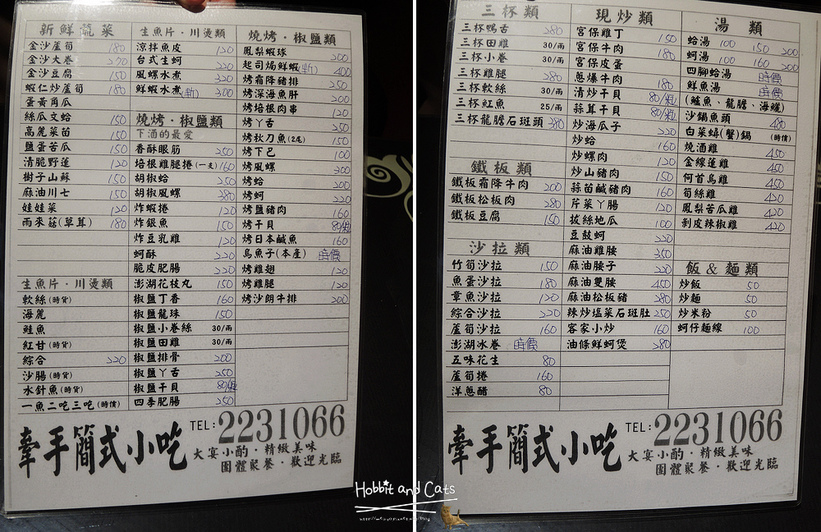 新鮮蔬菜
金沙蘆筍 180
金沙大卷 270
金沙豆腐 150
蝦仁炒蘆筍 180
蛋黃角瓜
絲瓜文蛤 150
高麗菜苗 150
鹽蛋苦瓜 150
清脆野蓮 120
樹子山蘇 150
麻油川七 150
娃娃菜 120
雨來菇(草茸) 180
生魚片．川燙類
軟絲(時貨)
海麗
鮭魚
紅甘(時貨)
綜合 220
沙腸(時貨)
水針魚(時貨)
一魚二吃三吃(時價)
生魚片．川燙類
涼拌魚皮 120
台式生蚵 220
風螺水煮 320
鮮蝦水煮 300
燒烤．椒鹽類
下酒的最愛
香酥眼筋 250
培根雞腿捲(一支)160
胡椒蛤 250
胡椒風螺 380
炸蝦捲 120
炸銀魚 150
炸豆乳雞 120
蚵酥 220
脆皮肥腸 220
澎湖花枝丸 150
椒鹽丁香 160
椒鹽龍珠 150
椒鹽小卷絲 30/兩
椒鹽田雞 30/兩
椒鹽排骨 200
椒鹽丫舌 250
椒鹽干貝
四季肥腸 250
燒烤．椒鹽類
鳳梨蝦球 200
起司焗鮮蝦 400
烤霜降豬排 250
烤深海魚肝 200
烤培根肉串 120
烤丫舌 250
烤秋刀魚(2尾) 150
烤下巴 100
烤風螺 300
烤蛤 200
烤蚵 200
烤鹽豬肉 160
烤干貝
烤日本鹹魚 160
烏魚子(本產) 時價
烤雞翅 120
烤雞腿 120
烤沙朗牛排 200
牽手簡式小吃
TEL:2231066
大宴小酌．精緻美味
團體聚餐．歡迎光臨
三杯類
三杯鴨舌 280
三杯田雞 30/兩
三杯小卷 30/兩
三杯雞腿 280
三杯軟絲 30/兩
三杯魟魚 25/兩
三杯龍膽石斑頭 380
鐵板類
鐵板霜降牛肉 200
鐵板松板肉 280
鐵板豆腐 150
沙拉類
竹筍沙拉 150
魚蛋沙拉 180
章魚沙拉 120
綜合沙拉 220
蘆筍沙拉 160
澎湖冰卷 時價
五味花生 80
蘆筍捲 160
洋蔥醋 80
現炒類
宮保雞丁 150
宮保牛肉 180
宮保皮蛋
蔥爆牛肉 180
清炒干貝
蒜茸干貝
炒海瓜子 220
炒蛤 160
炒螺肉 120
炒山豬肉 150
蒜苗鹹豬肉 160
芹菜丫腸 120
拔絲地瓜 100
豆鼓蚵 220
麻油雞腰 350
麻油腰子 220
麻油雙腰 450
麻油松板豬 280
辣炒塩菜石斑肚 250
客家小炒 160
油條鮮蚵煲 280
湯類
蛤湯 100 150 200
蚵湯 100 160 200
四腳蛤湯 時價
鮮魚湯 時價
(鱸魚、龍膽、海鱺)
沙鍋魚頭
白菜蟳(蟹)鍋 (時價)
燒酒雞 450
金線蓮雞 450
何首烏雞 450
筍絲雞 420
鳳梨苦瓜雞 420
剝皮辣椒雞 450
飯&麵類
炒飯 50
炒麵 50
炒米粉 50
蚵仔麵線 100
牽手簡式小吃
TEL:2231066
大宴小酌．精緻美味
團體聚餐．歡迎光臨
Hobbit and Cats